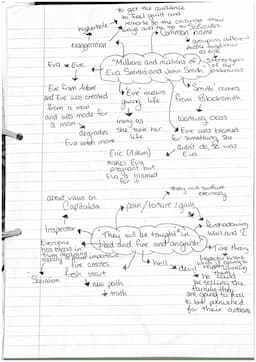 to get the audience
to feel guilt and
remorse so the change their
ways and to go to Socialism
hyperbole
Common name
exaggeration
grouping different
people together
as one
Eva → Eve
"Millions and millions of
Eva Smiths and John Smith
stereotypes
of the
Eve from Adam
and Eve was created
from a man
and was made for
a man
Eve means
giving life
Smith comes
from Blacksmith
irony as
she took her
life
Working class
degrades
Eva even more
Eve was blamed
for something she
didn't do, so was
Eva
Eric (Adam)
makes Eva
pregnant but
Eva is blamed
for it
about views on
Capitalism
pain/torture/guilt
they will suffer
eternally
Inspector
"They will be taught in
fire and blood and anguish"
foreshadowing
WW1 and 2
Everyone
has blood in
Time theory
hell
devil
fire creates
fresh start
new path
truth
Socialism
Inspector knows
what's going to
happen
he could
be telling the
family they
are going to hell
to be punished
for their actions